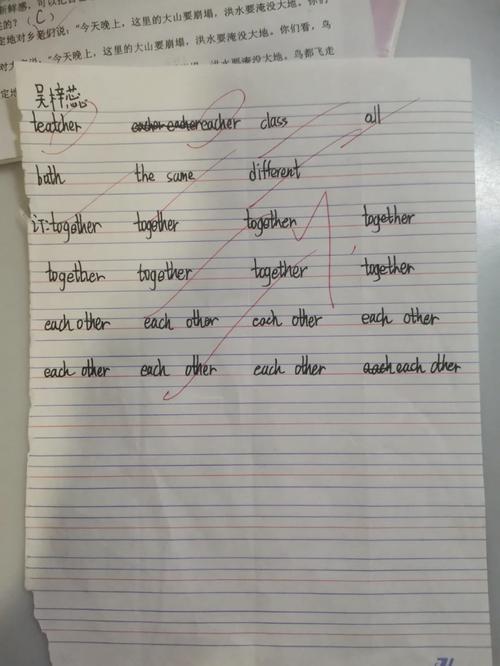 的？（C）
定地对乡亲们说：“今天晚上，这里的大山要崩塌，洪水要淹没大地。你们
“今天晚上，这里的大山要崩塌，洪水要淹没大地。你们看，鸟
洪水要淹没大地。鸟都飞走
吴梓蕊
teatcher eacher eacher eacher class all
bath the same different
订：together together together together
together together together together
each other each other each other each other
each other each other each other each each other